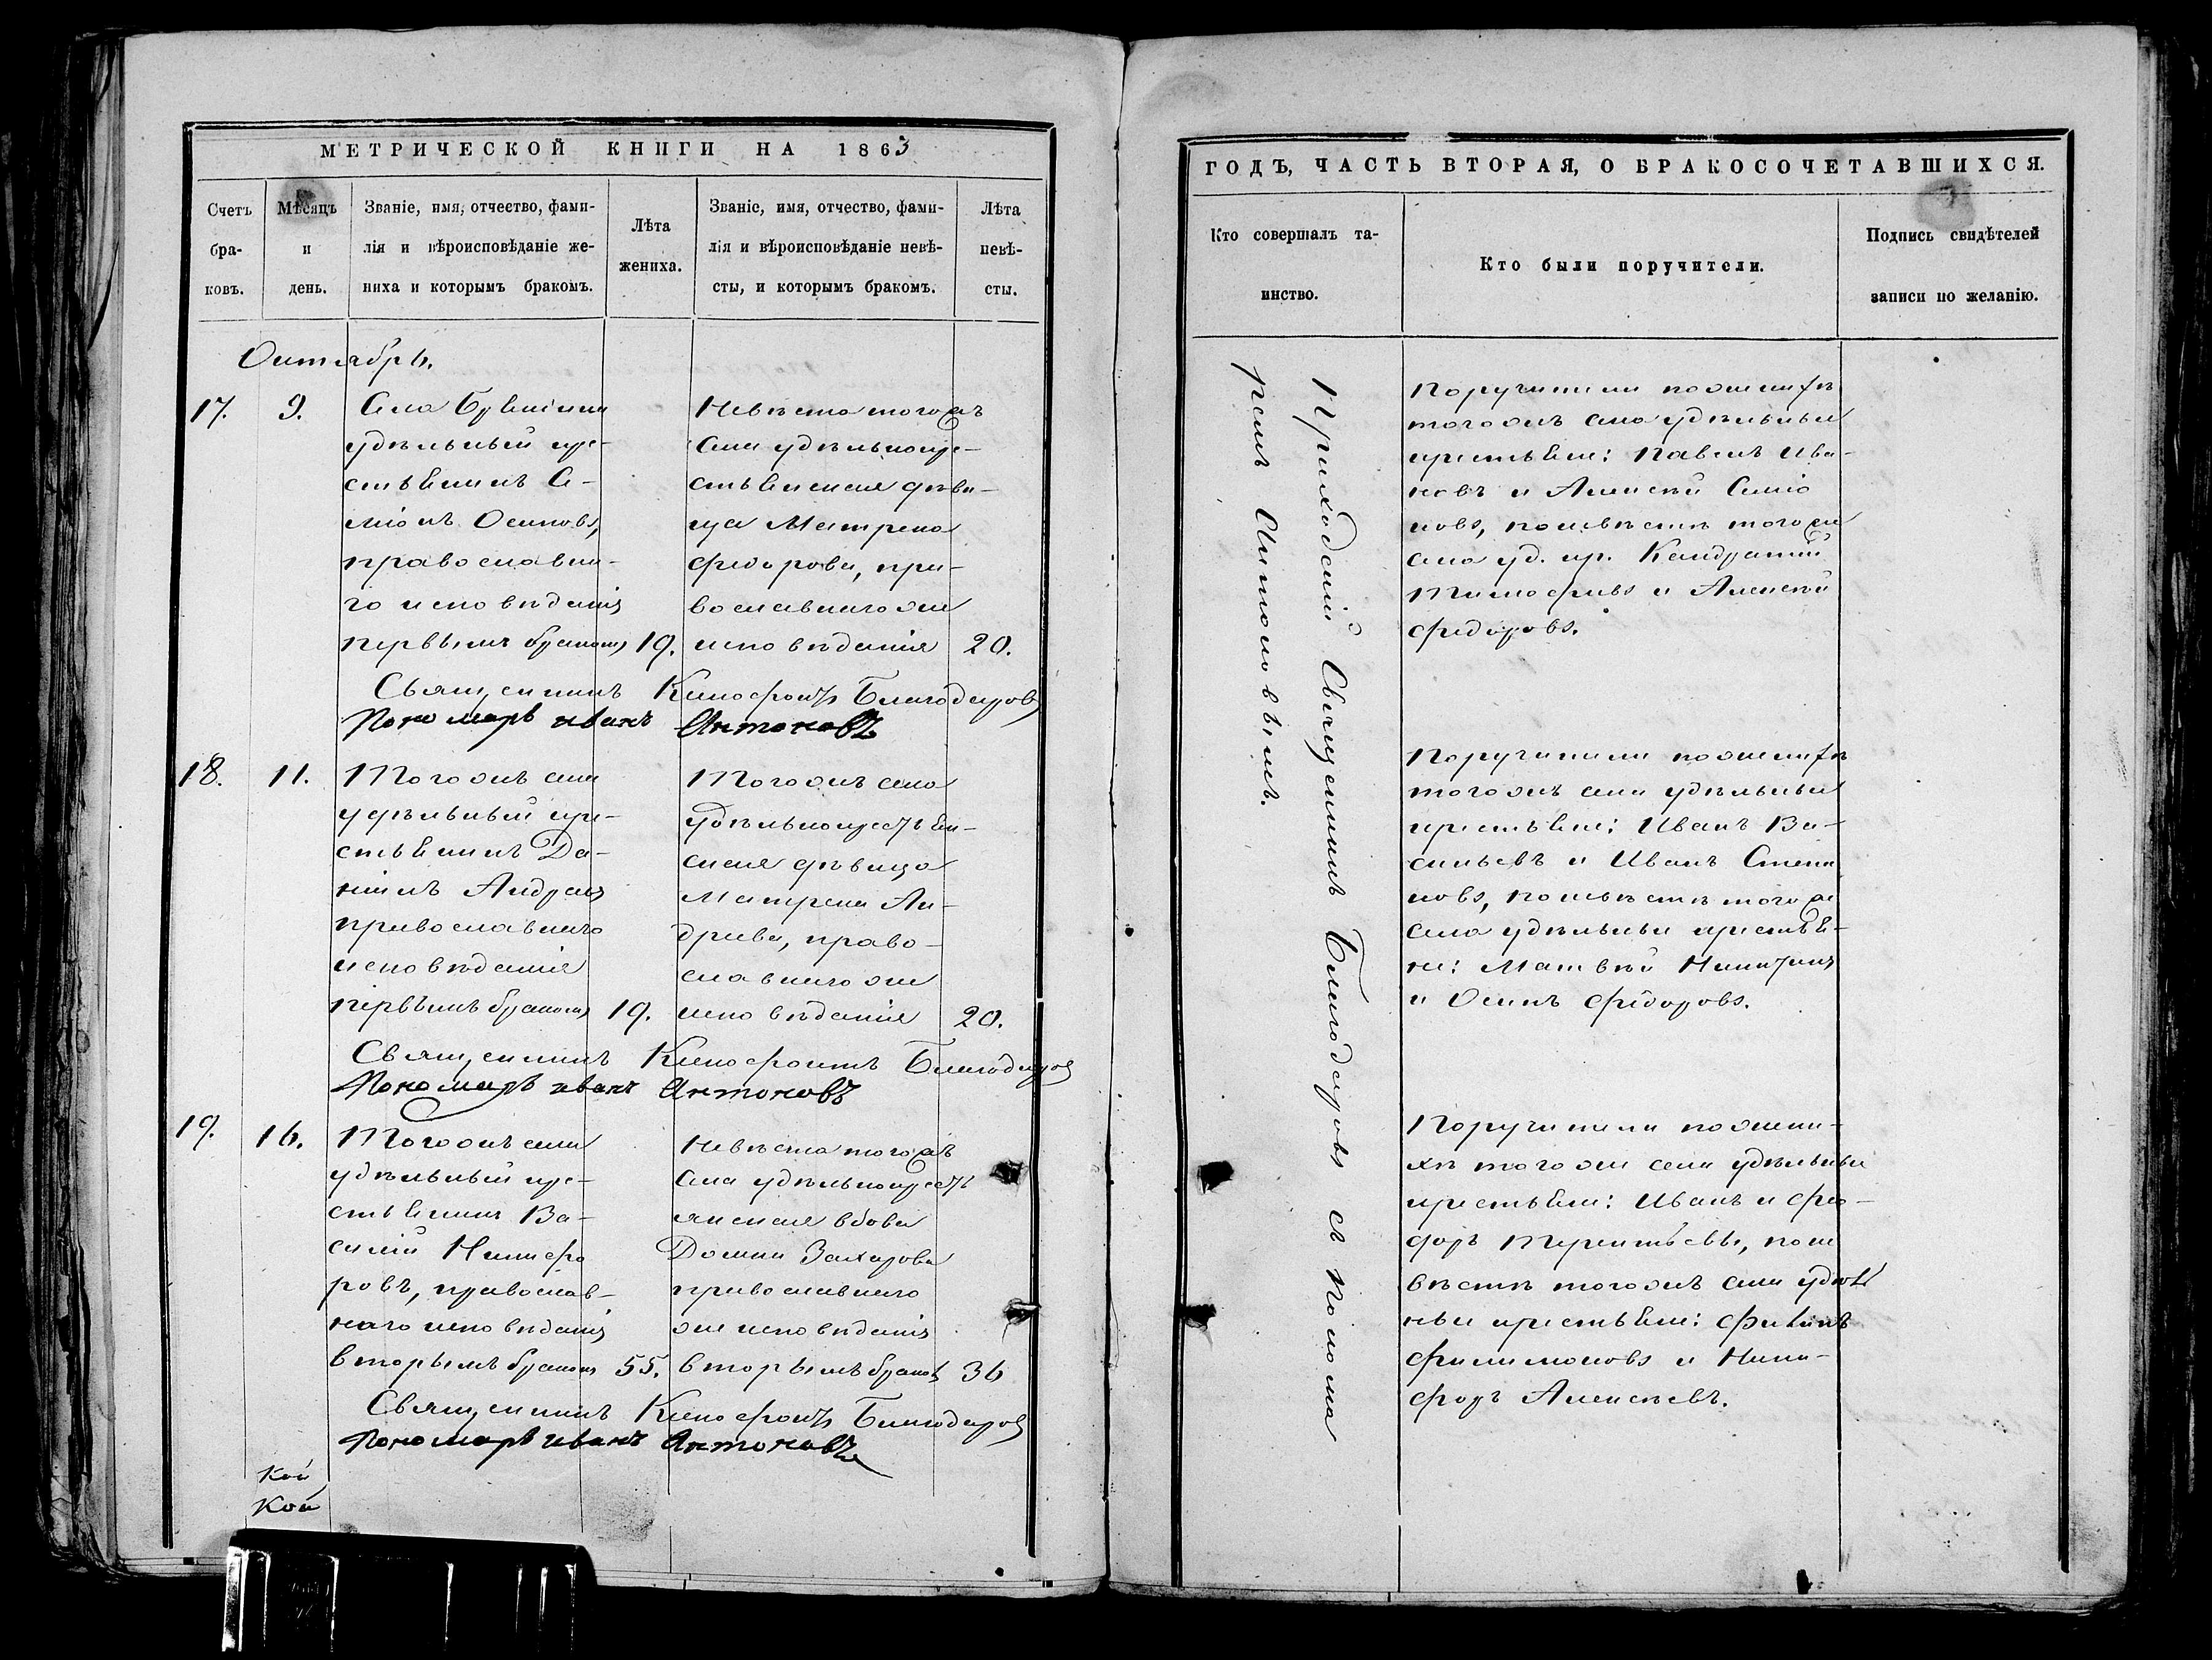 МЕТРИЧЕСКОЙ КНИГИ НА 1863
Счетъ бра-ковъ.
Мѣсяцъ и день.
Званіе, имя, отчество, фами-
лія и вѣроисповѣданіе же-
ниха и которымъ бракомъ.
Лѣта
жениха.
Званіе, имя, отчество, фами-
лія и вѣроисповѣданіе невѣ-
сты, и которымъ бракомъ.
Лѣта
невѣ-
сты.
Октябрь.
17. 9.
Села
удѣльный кре-
стьянинъ Си-
міонъ Осиповъ,
православна-
го исповѣданія
первымъ бракомъ 19.
Невѣста тогожъ
села удѣльнокре-
стьянская дѣви-
ца Матрена
Федорова, пра-
вославнагоже
исповѣданія 20.
Священникъ Ксенофонтъ Благодаровъ
Пономарь Иванъ Антоновъ
18. 11.
Тогожъ села
удѣльный кре-
стьянинъ Да-
ніилъ Андреевъ
православнаго
исповѣданія
первымъ бракомъ 19.
Тогожъ села
удѣльнокрестьян-
ская дѣвица
Матрена Ан-
дреева, право-
славнагоже
исповѣданія 20.
Священникъ Ксенофонтъ Благодаровъ
Пономарь Иванъ Антоновъ
19. 16.
Тогожъ села
удѣльный кре-
стьянинъ Ва-
силій Никифо
ровъ, православ-
наго исповѣданія
вторымъ бракомъ 55.
Невѣста тогожъ
села удѣльнокресть
янская вдова
Домна Захарова
православнаго
же исповѣданія
вторымъ бракомъ 36
Священникъ Ксенофонтъ Благодаровъ
Пономарь Иванъ Антоновъ
Кой
Кой
ГОДЪ, ЧАСТЬ ВТОРАЯ, О БРАКОСОЧЕТАВШИХСЯ.
Кто совершалъ та-
инство.
Кто были поручители.
Подпись свидѣтелей
записи по желанію.
Приходскій Священникъ Благодаровъ съ понома
ремъ Антоновымъ.
Поручители по женихѣ
тогожъ села удѣльные
крестьяне: Павелъ Ива-
новъ и Алексѣй Симіо
новъ, по невѣстѣ тогоже
села уд. кр. Кандратій
Тимофеевъ и Алексѣй
Федоровъ.
Поручители по женихѣ
тогожъ села удѣльные
крестьяне: Иванъ Ва-
сильевъ и Иванъ Степа
новъ, по невѣстѣ тогоже
села удѣльные крестья-
не: Матвѣй Никитинъ
и Осипъ Федоровъ.
Поручители по жени-
хѣ тогоже села удѣльные
крестьяне: Иванъ и Фео-
доръ Терентьевы, по не
вѣстѣ тогожъ села удѣль
ные крестьяне: Филипъ
Филимоновъ и Ники-
форъ Алексѣевъ.